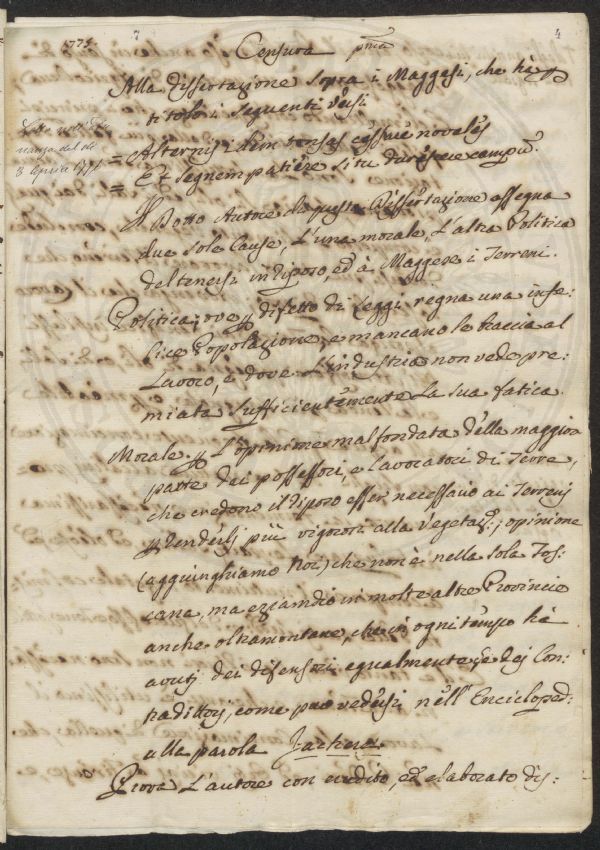 1775. 7 4
Censura p.ma
Alla dissertazione sopra i Maggesi, che hà p
titolo i seguenti Versi
nell' Adu
nanza del dì
8 Aprile 1775
= Alternis idem tonsas cessare novales
= Et segnem patiere situ durescere campu.
Il Dotto Autore di questa Dissertazione assegna
due sole Cause, L'una morale, L'altra Politica
del tenersi in riposo, ed à Maggese i Terreni.
Politica; ove p difetto di Leggi regna una infe:
lice Popolazione, e mancano le braccia al
Lavoro, e dove L'industria non vede pre:
miata sufficientemente La sua fatica.
Morale. p L'opinione malfondata della maggior
parte dei possessori, e lavoratori di Terre,
che credono il riposo esser necessario ai Terreni
p renderli più vigorosi alla Vegetaz.; opinione
(aggiunghiamo Noi) che non è nella sola Tos:
cana, ma eziandio in molte altre Provincie
anche oltramontane, che in ogni tempo hà
avuti dei difensori egualmente, e dei Con:
tradittorj, come può vedersi nell' Encicloped.
alla parola Jachere.
Prova L'autore con erudito, ed elaborato dis: